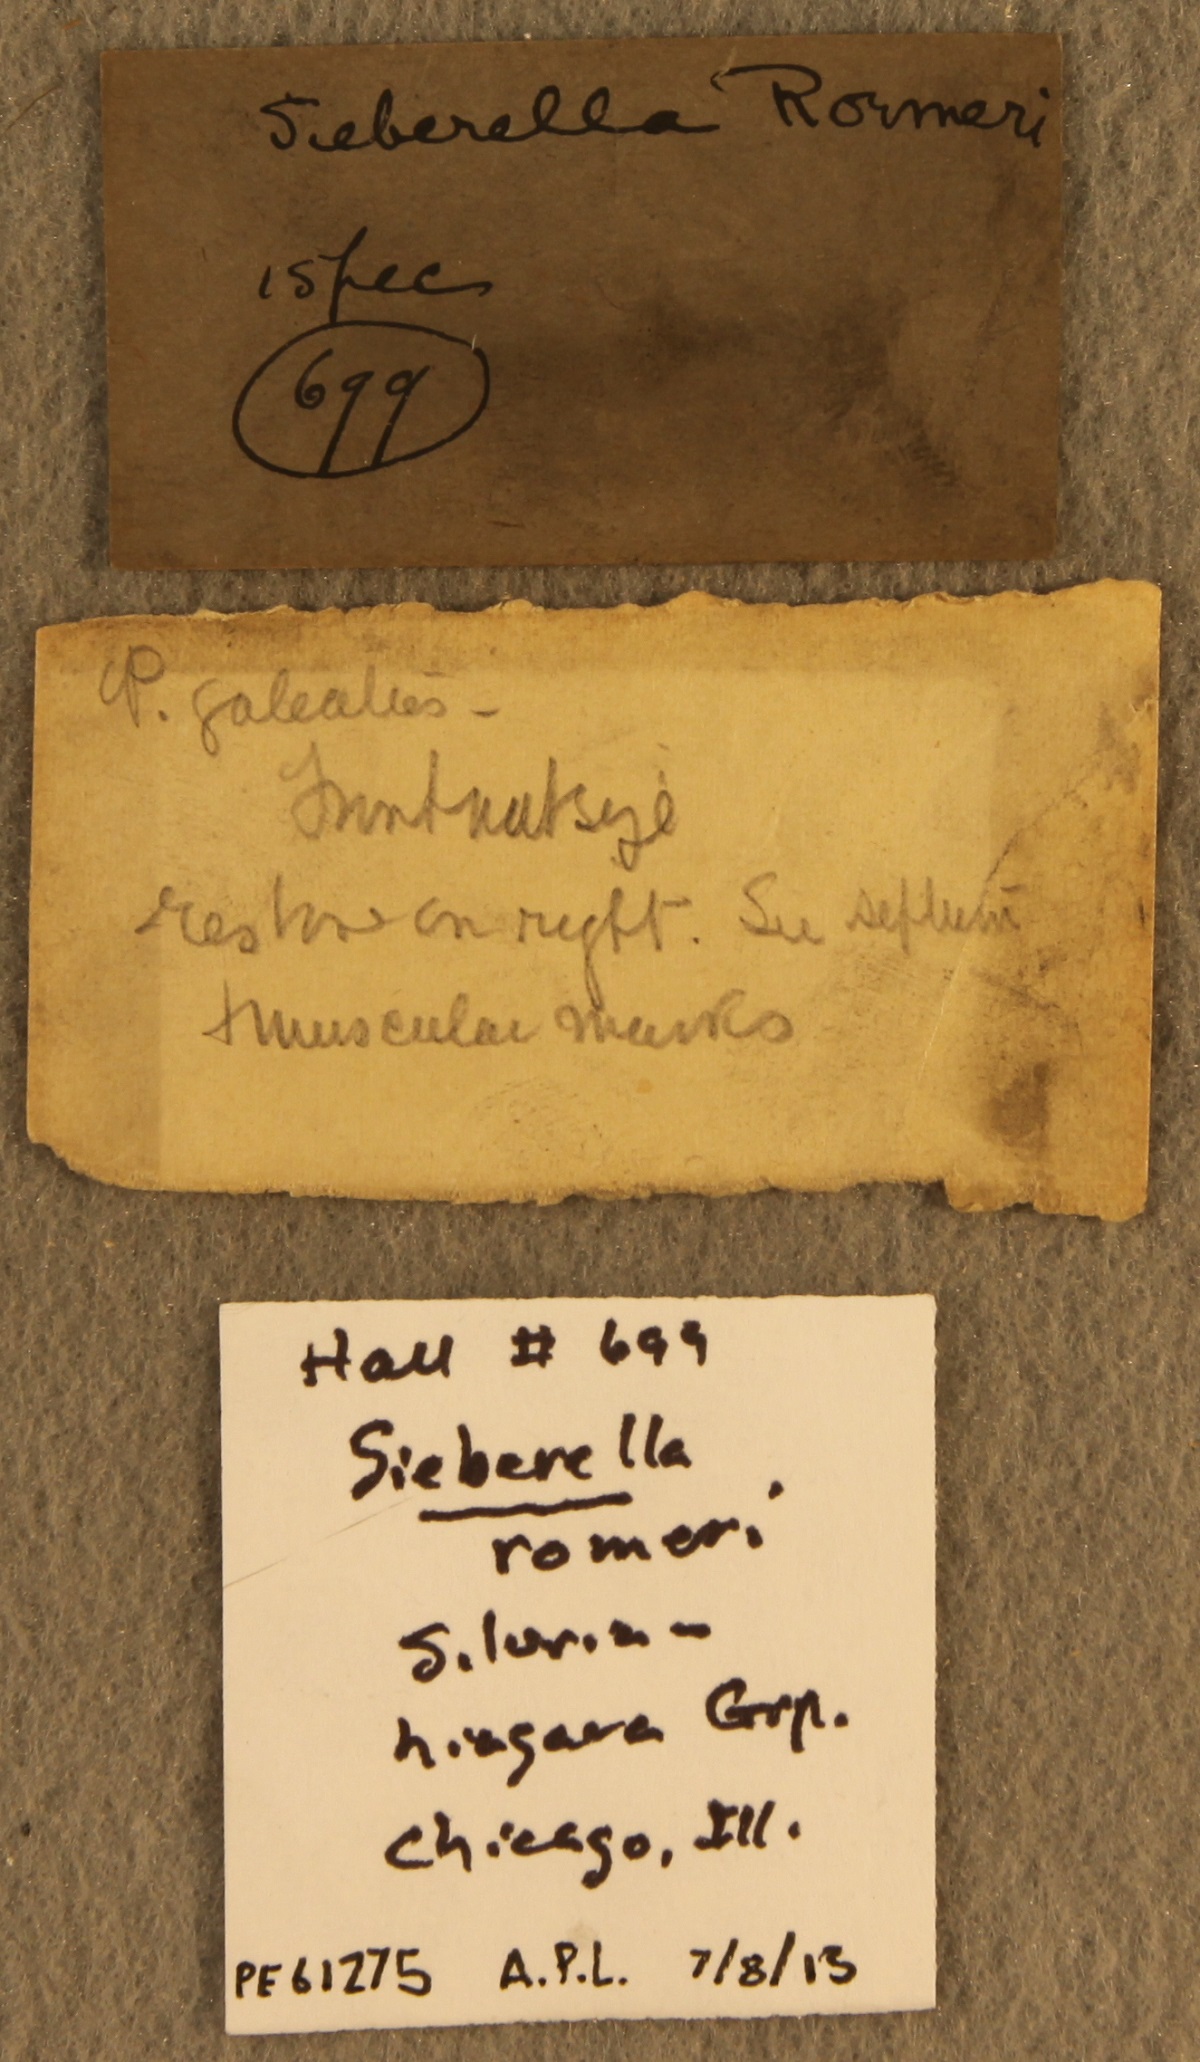 Sieberella Roemeri
1 spec
699
P. galeatus -
Front nat size
restore on right. See septum
+ muscular marks
Hall # 699
Sieberella
romeri
Silurian
Niagara Grp.
Chicago, Ill.
PE61275 A.P.L. 7/8/13